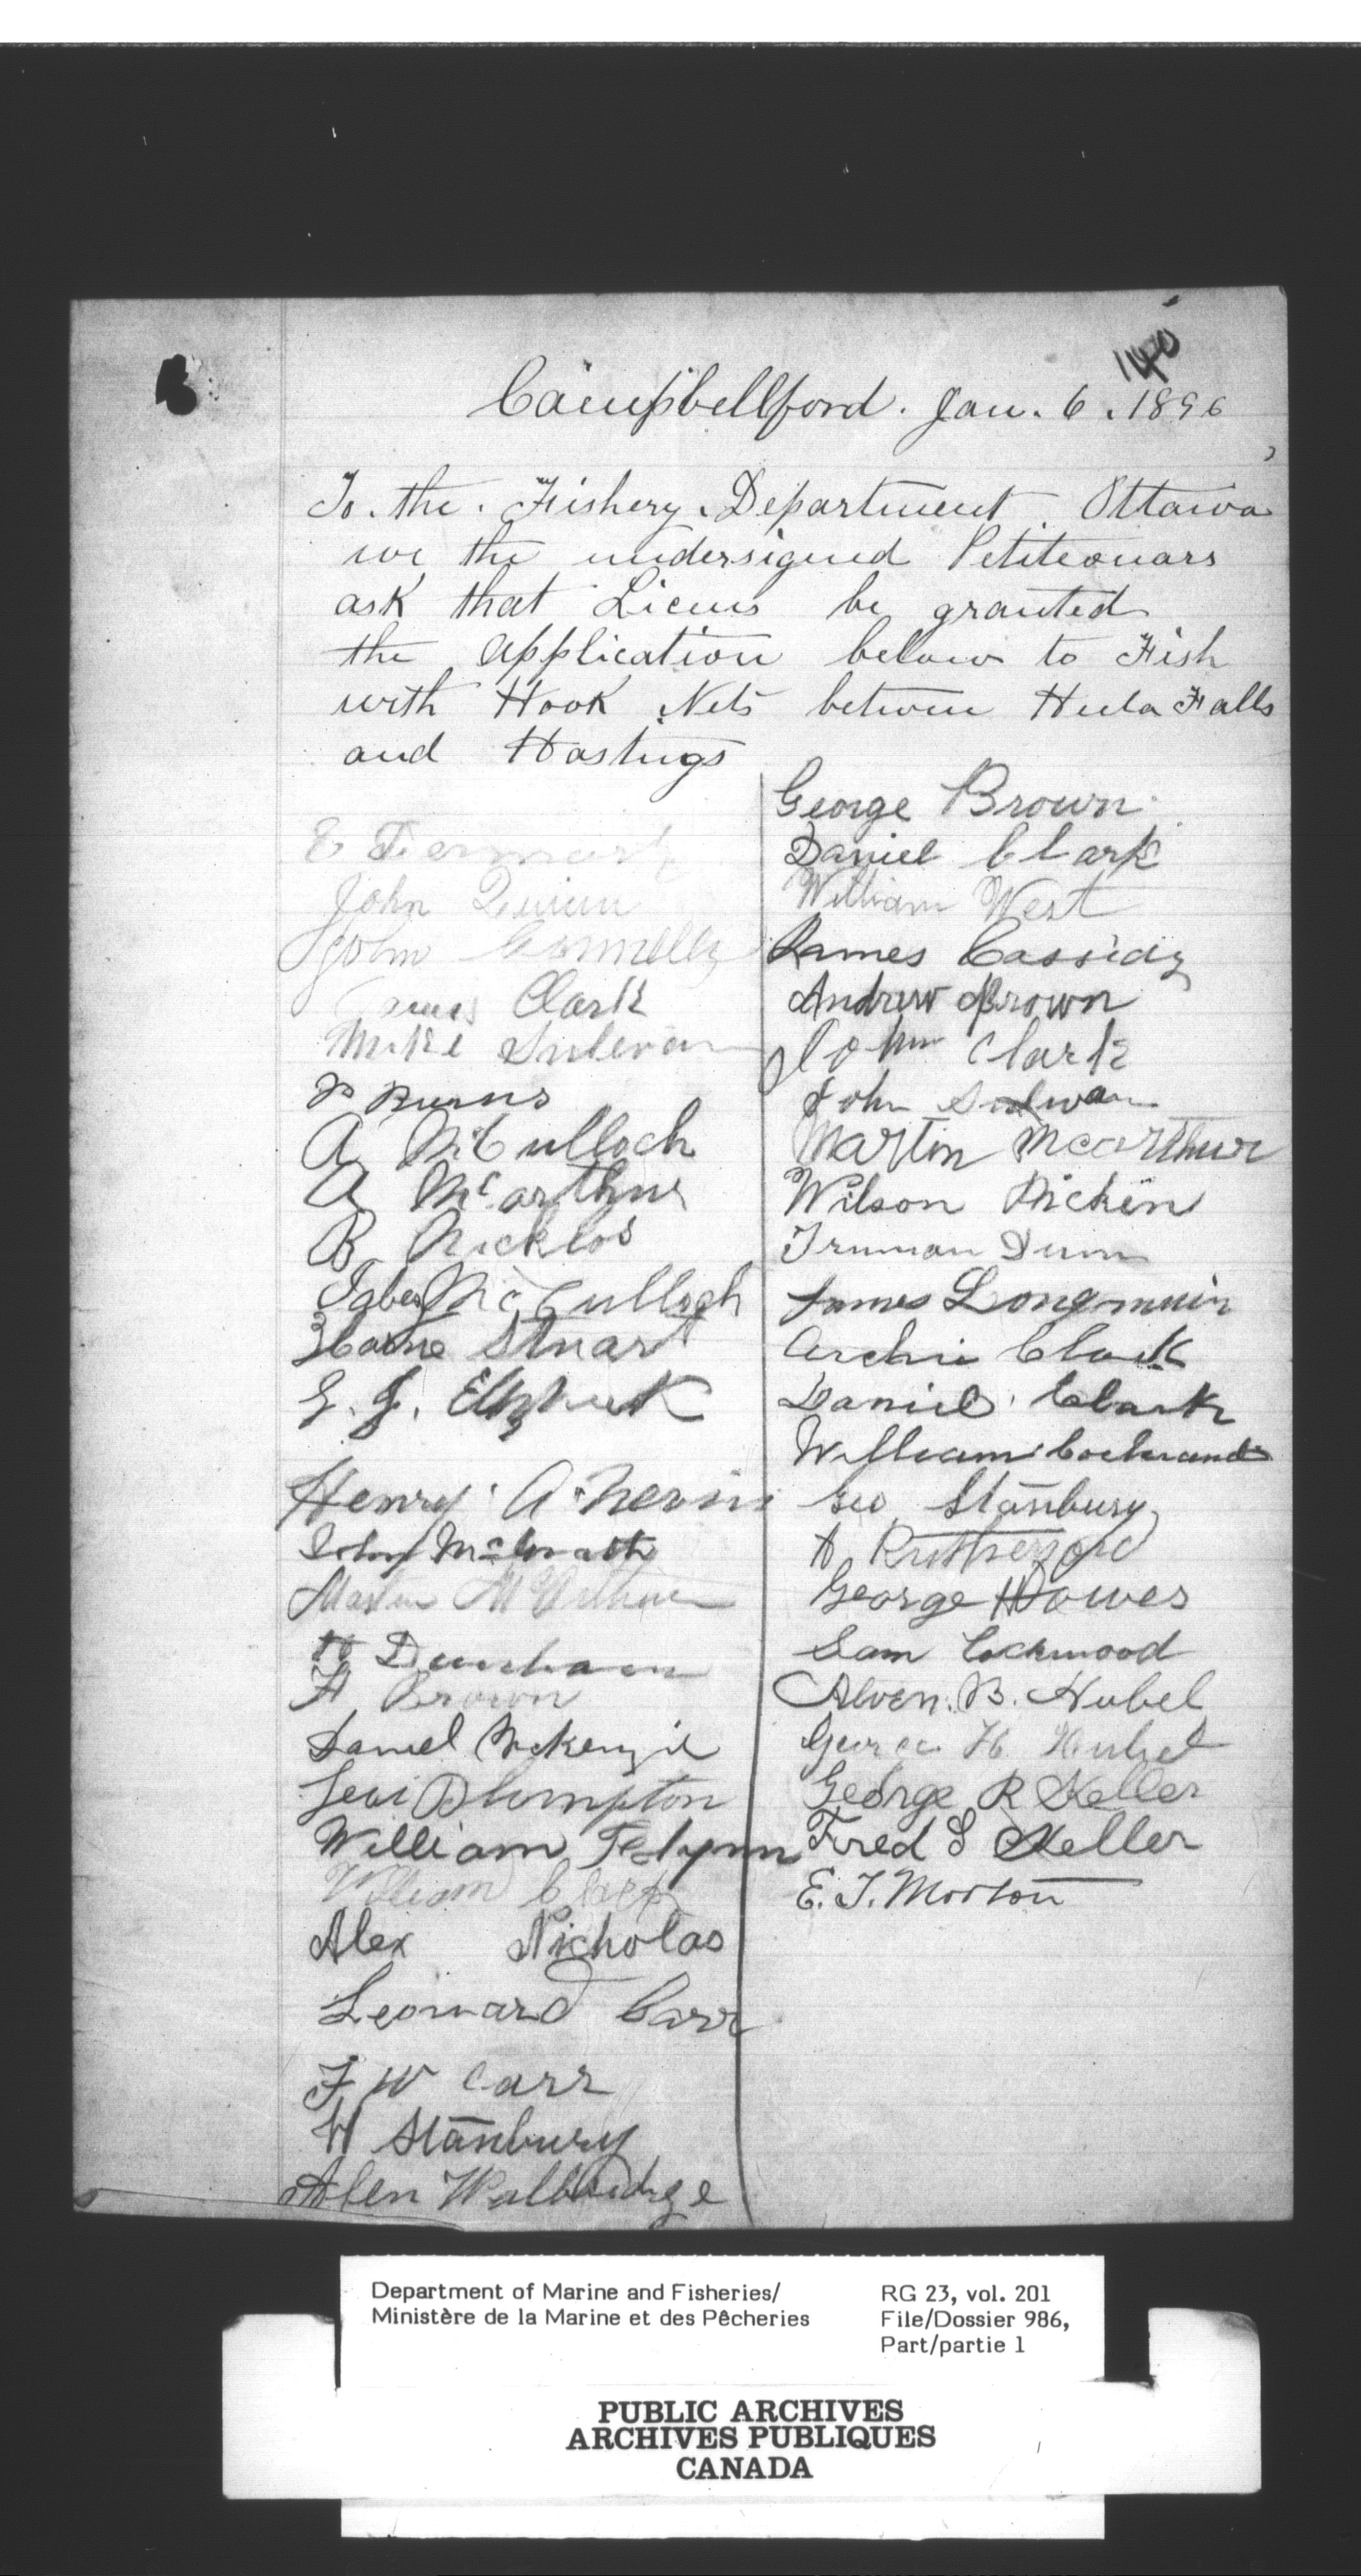 140
Campbellford. Jan. 6. 1896
To. the. Fishery. Department Ottawa
we the undersigned Petiteonars
ask that Licens be granted
the application below to Fish
with Hook Nets between Heela Falls
and Hastings
John Quinn
John Connelly
James Clark
Mike Sulevan
Burns
A McCulloch
A McArthur
B Nicklos
McCullogh
Stuart
Henry A.
John McGrath
McArthur
Dunham
H Brown
Daniel McKenzie
Levi Plumpton
William Felynn
William
Alex Nicholas
Leonard Carr
F W Carr
W Stanbury
Allen Wallbridge
George Brown
Daniel Clark
William West
James Cassidy
Andrew Brown
John Clark
John Sulivan
Martin McArthur
Wilson Dicken
Truman Dunn
James Longmuir
Archie Clark
Daniel Clark
William Cochrane
Geo Stanbury
A Rutherford
George Dawes
Sam Lockwood
Alven. B. Hubel
George H Hubel
George R Keller
Fred S Keller
E. T. Morton
Department of Marine and Fisheries/
Ministère de la Marine et des Pêcheries
RG 23, vol. 201
File/Dossier 986,
Part/partie 1
PUBLIC ARCHIVES
ARCHIVES PUBLIQUES
CANADA